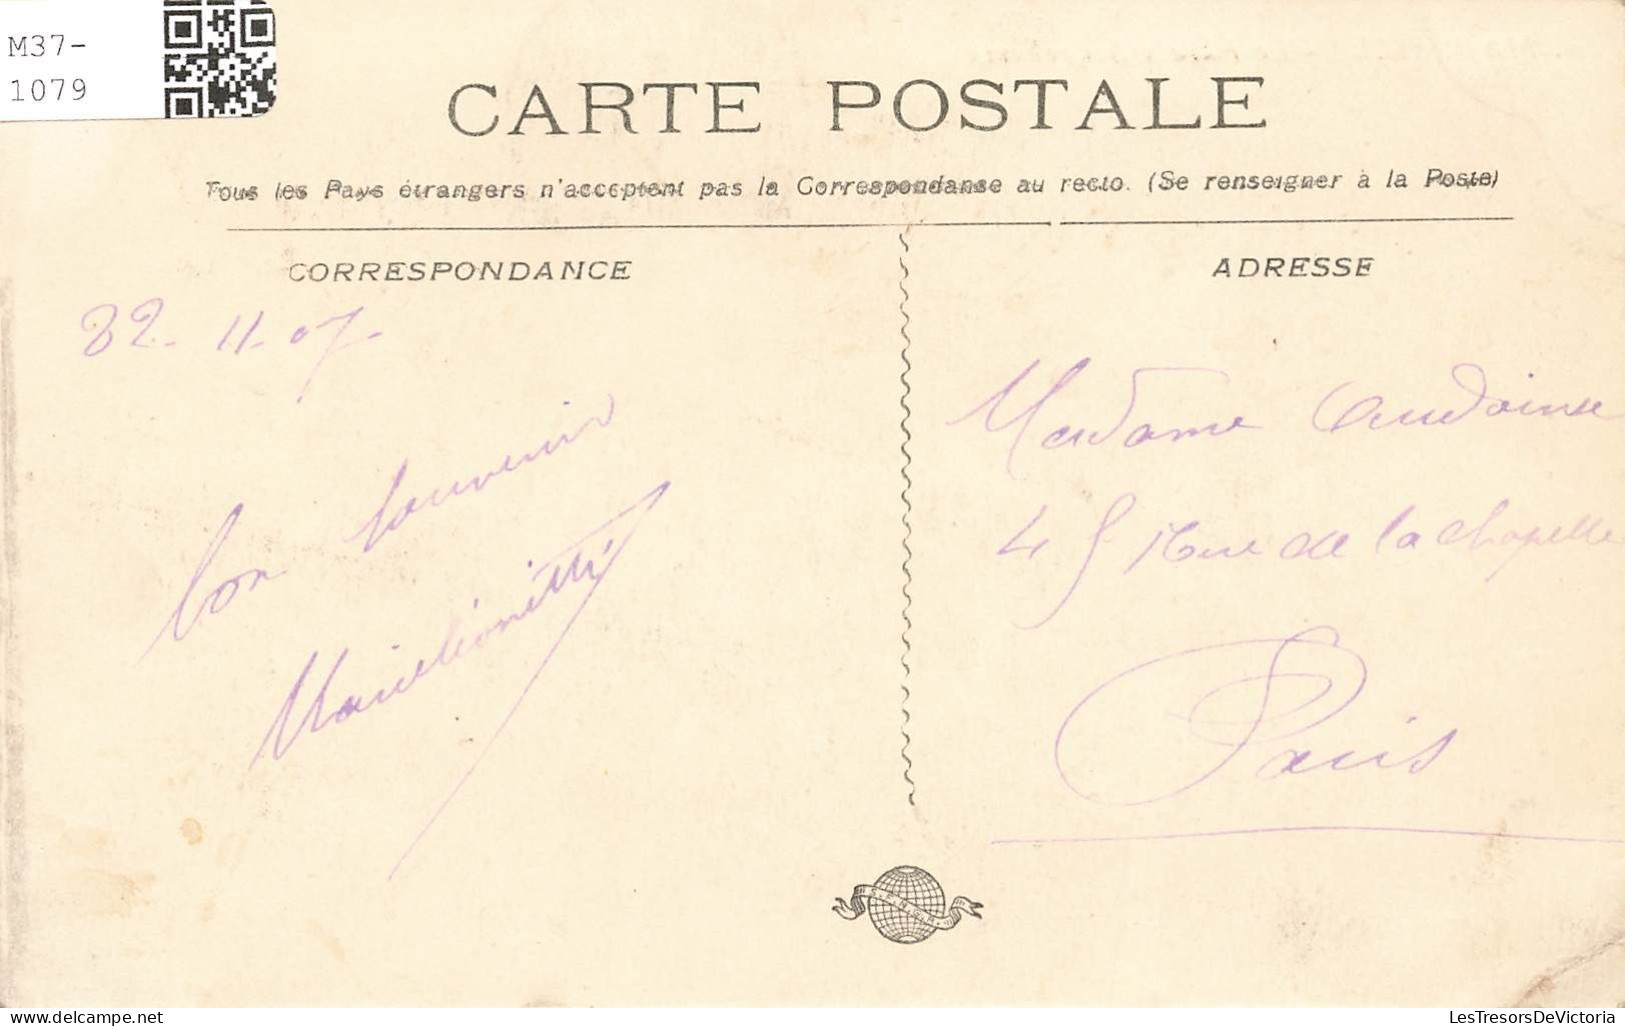 M37-
1079
CARTE POSTALE
Tous les Pays étrangers n'acceptent pas la Correspondanse au recto. (Se renseigner à la Poste)
CORRESPONDANCE
ADRESSE
22-11-07-
bon souvenir
Madame
45 Rue de la Chapelle
Paris
LesTresorsDeVictoria
www.delcampe.net